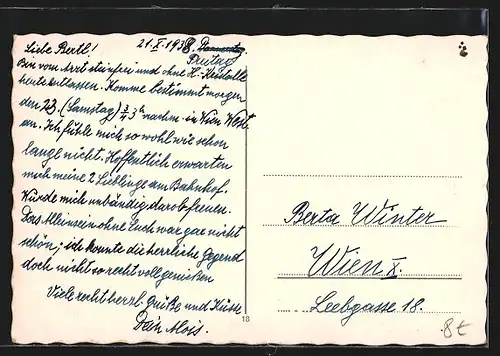 21.X.1938. Donnerstag
Liebe Bertl! Freitag
Bin vom Arzt steinfrei und ohne H.-Kristalle
heute entlassen. Komme bestimmt morgen
den 23. (Samstag) ¾ 3h nachm. in Wien West
an. Ich fühle mich so wohl wie schon
lange nicht. Hoffentlich erwarten
mich meine 2 Lieblinge am Bahnhof.
Würde mich unbändig darob freuen.
Das Alleinsein ohne Euch war gar nicht
schön; ich konnte die herrliche Gegend
doch nicht so recht voll genießen
Viele recht herzl. Grüße und Küsse
Dein Alois.
Berta Winter
Wien X.
Leebgasse 18.
18
8€